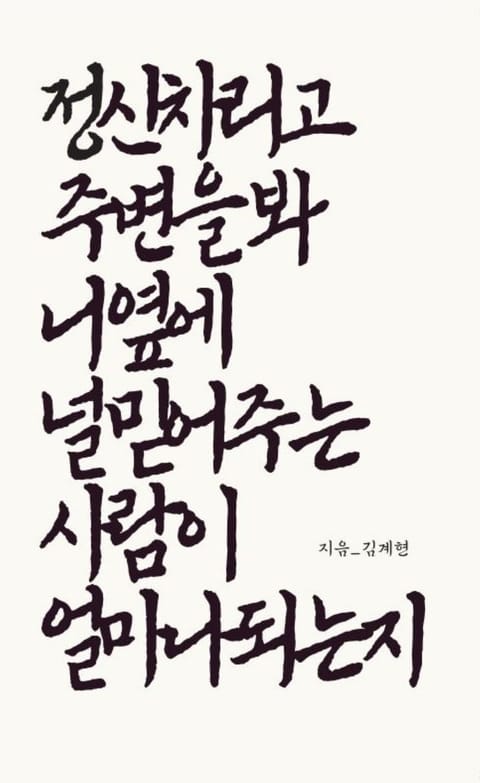 정신차리고
주변을봐
니옆에
널믿어주는
사람이
지음_김계현
얼마나되는지